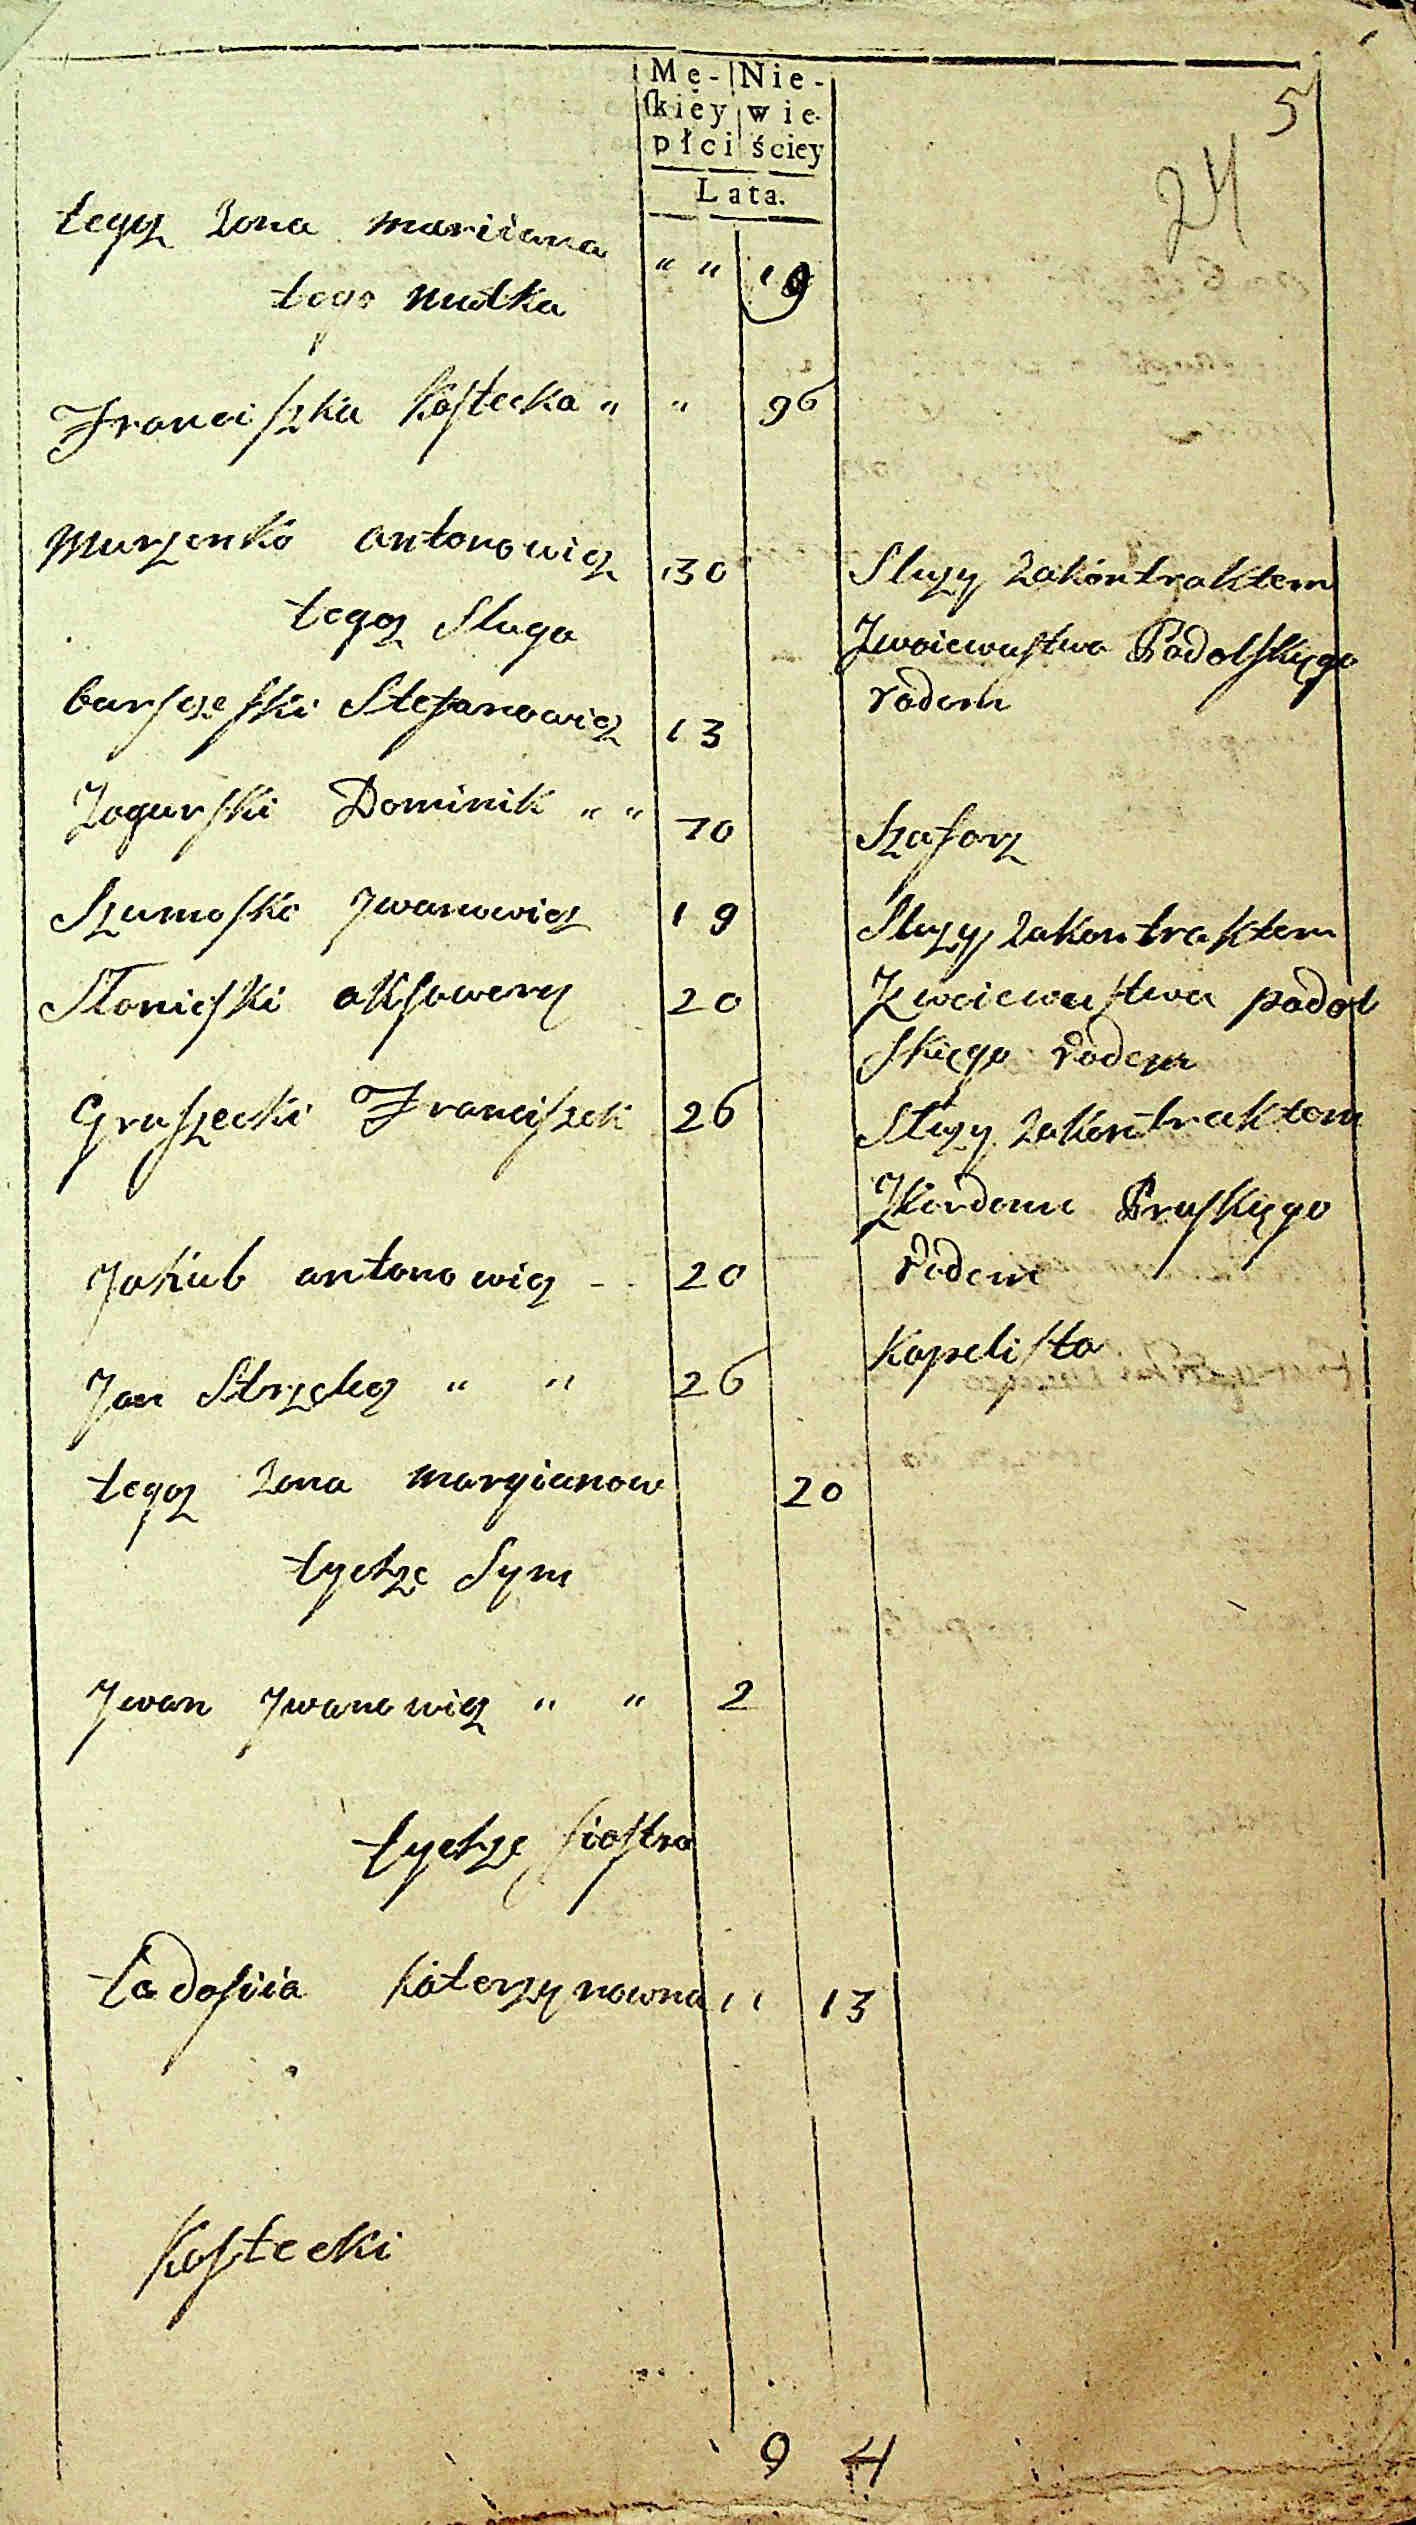 Mę- Nie-
ſkiey wie-
płci ściey
Lata.
5
24
tegoz zona mariiana " " 19
tego matka
Franciſzka Koſtecka " " 96
Murzenko antonowicz 30 Sluzy zakontraktem
tegoz Sluga Zwoiewuſtwa Podolſkiego
rodem
barſzeſki Stefanowicz 13
Zogurſki Dominik " " 70 Szaforz
Szumoſki Jwanowicz 19 Sluzy zakontraktem
Slonieſki akſawery 20 Zwoiewuſtwa podol
ſkiego rodem
Gruſzecki Franciſzek 26 Sluzy zakontraktem
Zkordonu Pruſkiego
Jakub antonowicz - - 20 rodem
Kapeliſta
Jan Strzelec " " 26
tegoz zona maryianow 20
tychze Sym
Jwan Jwanowicz " " 2
tychze ſioſtra
tadoſiia katerzynowna " 13
Koſtecki
9 4